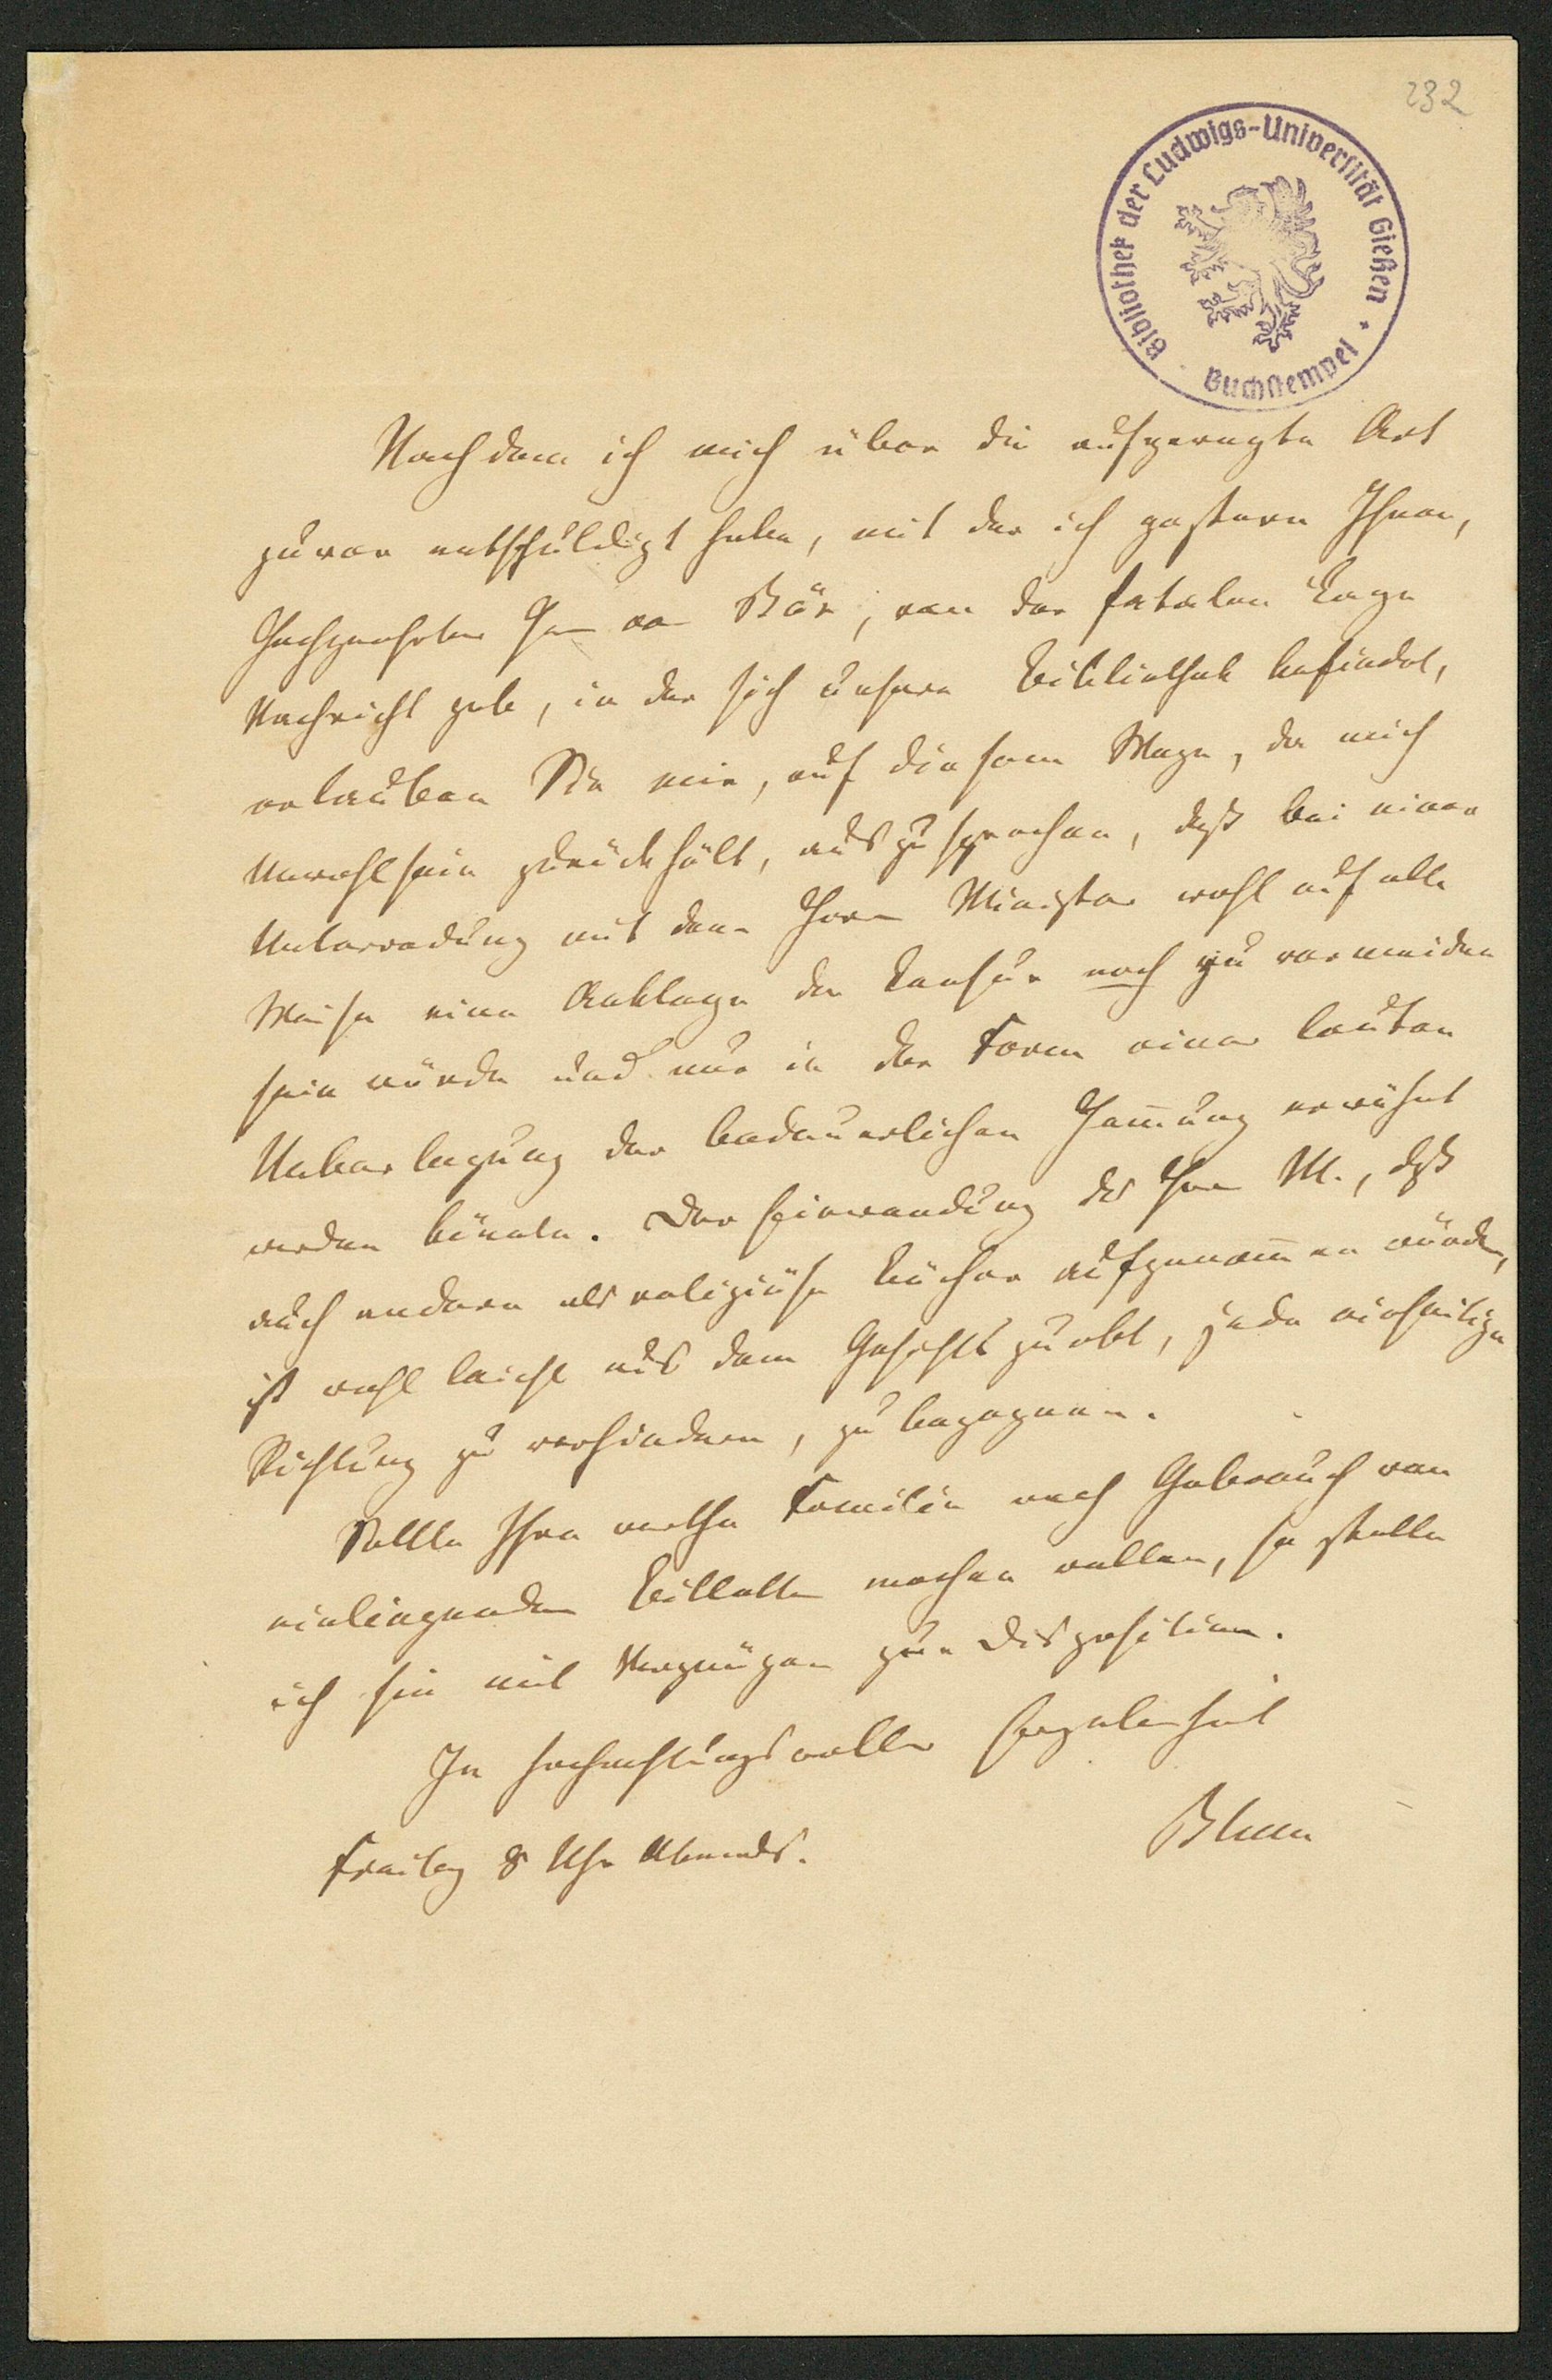 232
Bibliothek der Ludwigs-Universität Gießen
Buchstempel
Nachdem ich mich über die aufgeregte Art
zuvor entschuldigt habe, mit der ich gestern Ihnen,
Hochgeehrter Herr von Bär, von der fatalen Lage
Nachricht gab, in der sich unsere Bibliothek befindet,
erlauben Sie mir, auf diesem Wege, da mich
Unwohlsein zurückhält, auszusprechen, daß bei einer
Unterredung mit dem Herrn Minister wohl auf alle
Weise eine Anklage der Censur noch zu vermeiden
sein würde und nur in der Form einer lauten
Ueberlegung der bedauerlichen Hemmung erwähnt
werden könnte. Der Einwendung des Herrn M., daß
auch andere als religiöse Bücher aufgenommen würden,
ist wohl leicht aus dem Gesichtspunkt, jede einseitige
Richtung zu verhindern, zu begegnen.
Sollte Ihre werthe Familie nach Gebrauch von
einliegenden Billetten machen wollen, so stelle
ich sie mit Vergnügen zur Disposition.
In hochachtungsvoller Ergebenheit
Blum
Freitag 8 Uhr Abends.